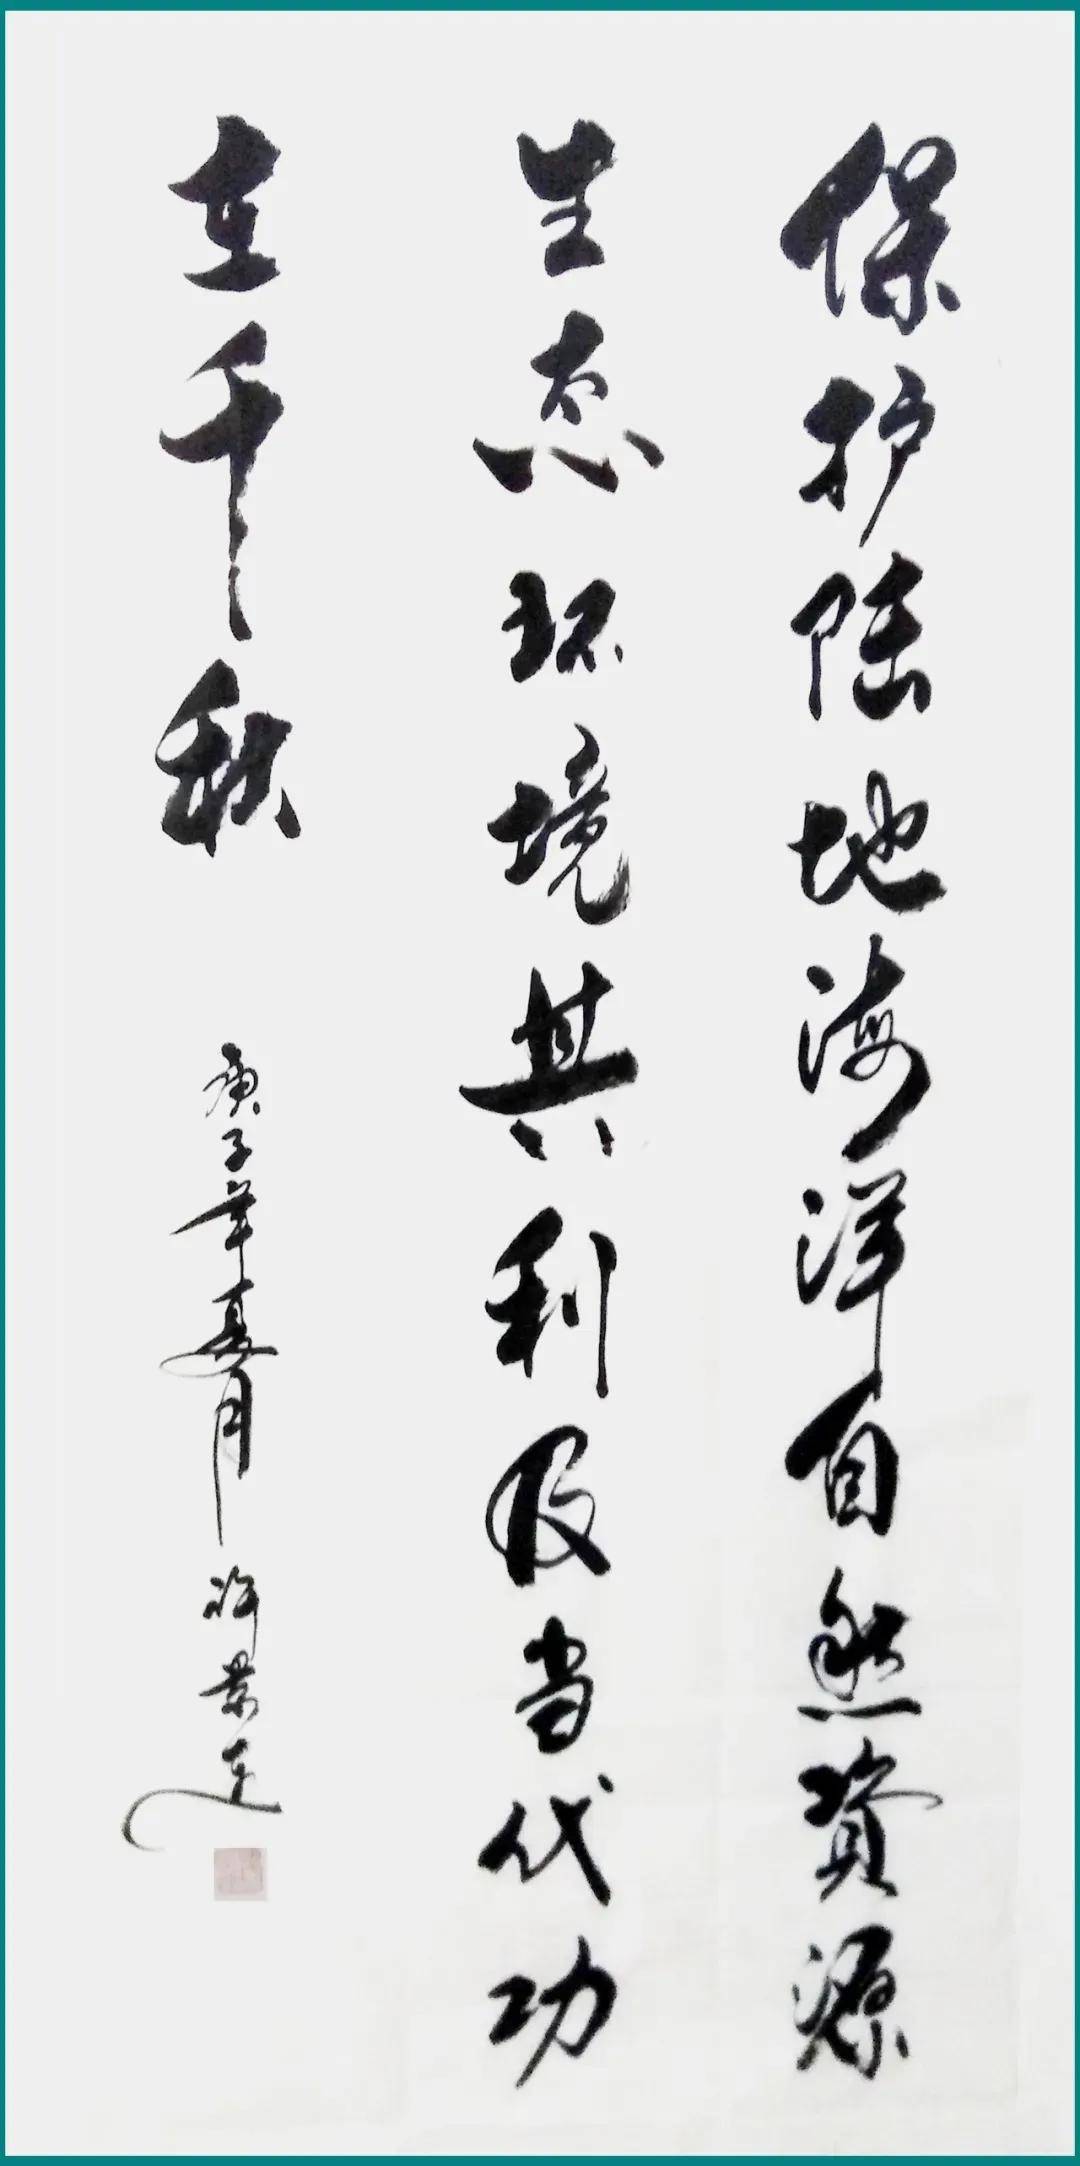 保护陆地海洋自然資源
生态环境其利及当代功
在千秋
庚子年夏月 许景